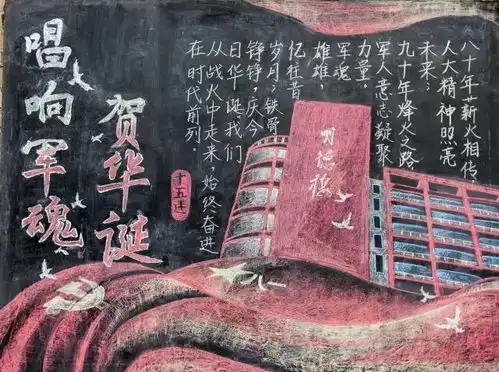 唱响军魂
贺华诞
十五连
八十年薪火相传,
人大精神照亮
未来;
九十年烽火之路,
军人意志凝聚
力量。
军魂
雄雄,
忆往昔
岁月;铁骨
铮铮,庆今
日华诞.我们
从战火中走来,始终奋进
在时代前列.
明德楼